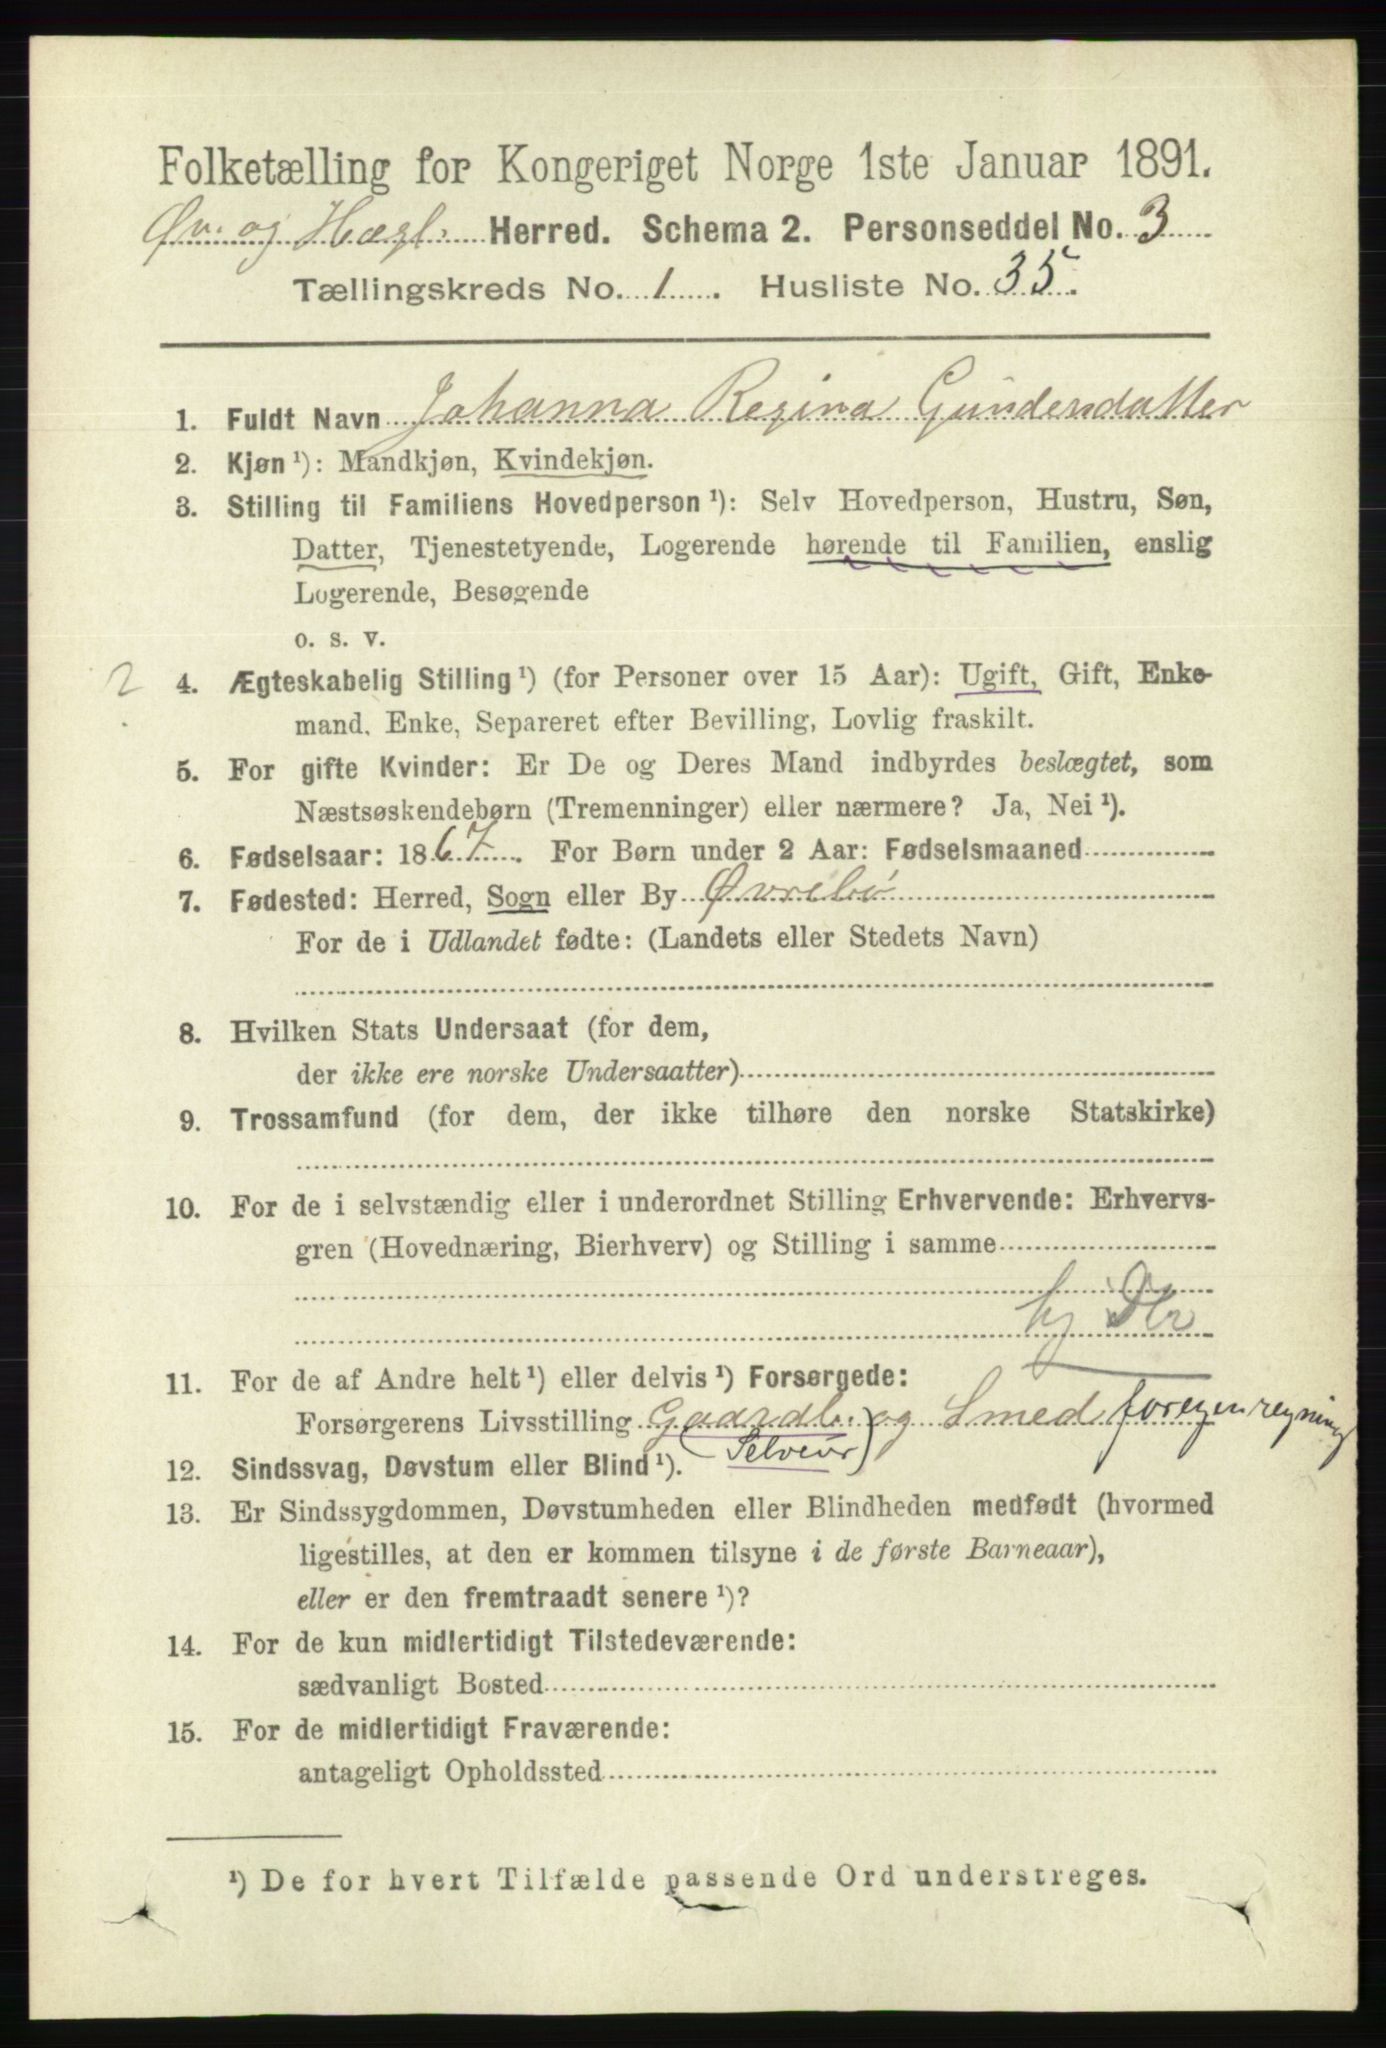 Folketælling for Kongeriget Norge 1ste Januar 1891.
Øv. og Hægl. Herred. Schema 2. Personseddel No. 3
Tællingskreds No. 1. Husliste No. 35.
1. Fuldt Navn Johanna Regina Gundersdatter
2. Kjøn ¹): Mandkjøn, Kvindekjøn.
3. Stilling til Familiens Hovedperson ¹): Selv Hovedperson, Hustru, Søn,
Datter, Tjenestetyende, Logerende hørende til Familien, enslig
Logerende, Besøgende
o. s. v.
2 4. Ægteskabelig Stilling ¹) (for Personer over 15 Aar): Ugift, Gift, Enke-
mand, Enke, Separeret efter Bevilling, Lovlig fraskilt.
5. For gifte Kvinder: Er De og Deres Mand indbyrdes beslægtet, som
Næstsøskendebørn (Tremenninger) eller nærmere? Ja, Nei ¹).
6. Fødselsaar: 1867. For Børn under 2 Aar: Fødselsmaaned
7. Fødested: Herred, Sogn eller By Øvrebø
For de i Udlandet fødte: (Landets eller Stedets Navn)
8. Hvilken Stats Undersaat (for dem,
der ikke ere norske Undersaatter)
9. Trossamfund (for dem, der ikke tilhøre den norske Statskirke)
10. For de i selvstændig eller i underordnet Stilling Erhvervende: Erhvervs-
gren (Hovednæring, Bierhverv) og Stilling i samme
11. For de af Andre helt ¹) eller delvis ¹) Forsørgede:
Forsørgerens Livsstilling Gaardb. og Smed for egen regning
(Selveier)
12. Sindssvag, Døvstum eller Blind ¹).
13. Er Sindssygdommen, Døvstumheden eller Blindheden medfødt (hvormed
ligestilles, at den er kommen tilsyne i de første Barneaar),
eller er den fremtraadt senere ¹)?
14. For de kun midlertidigt Tilstedeværende:
sædvanligt Bosted
15. For de midlertidigt Fraværende:
antageligt Opholdssted
¹) De for hvert Tilfælde passende Ord understreges.